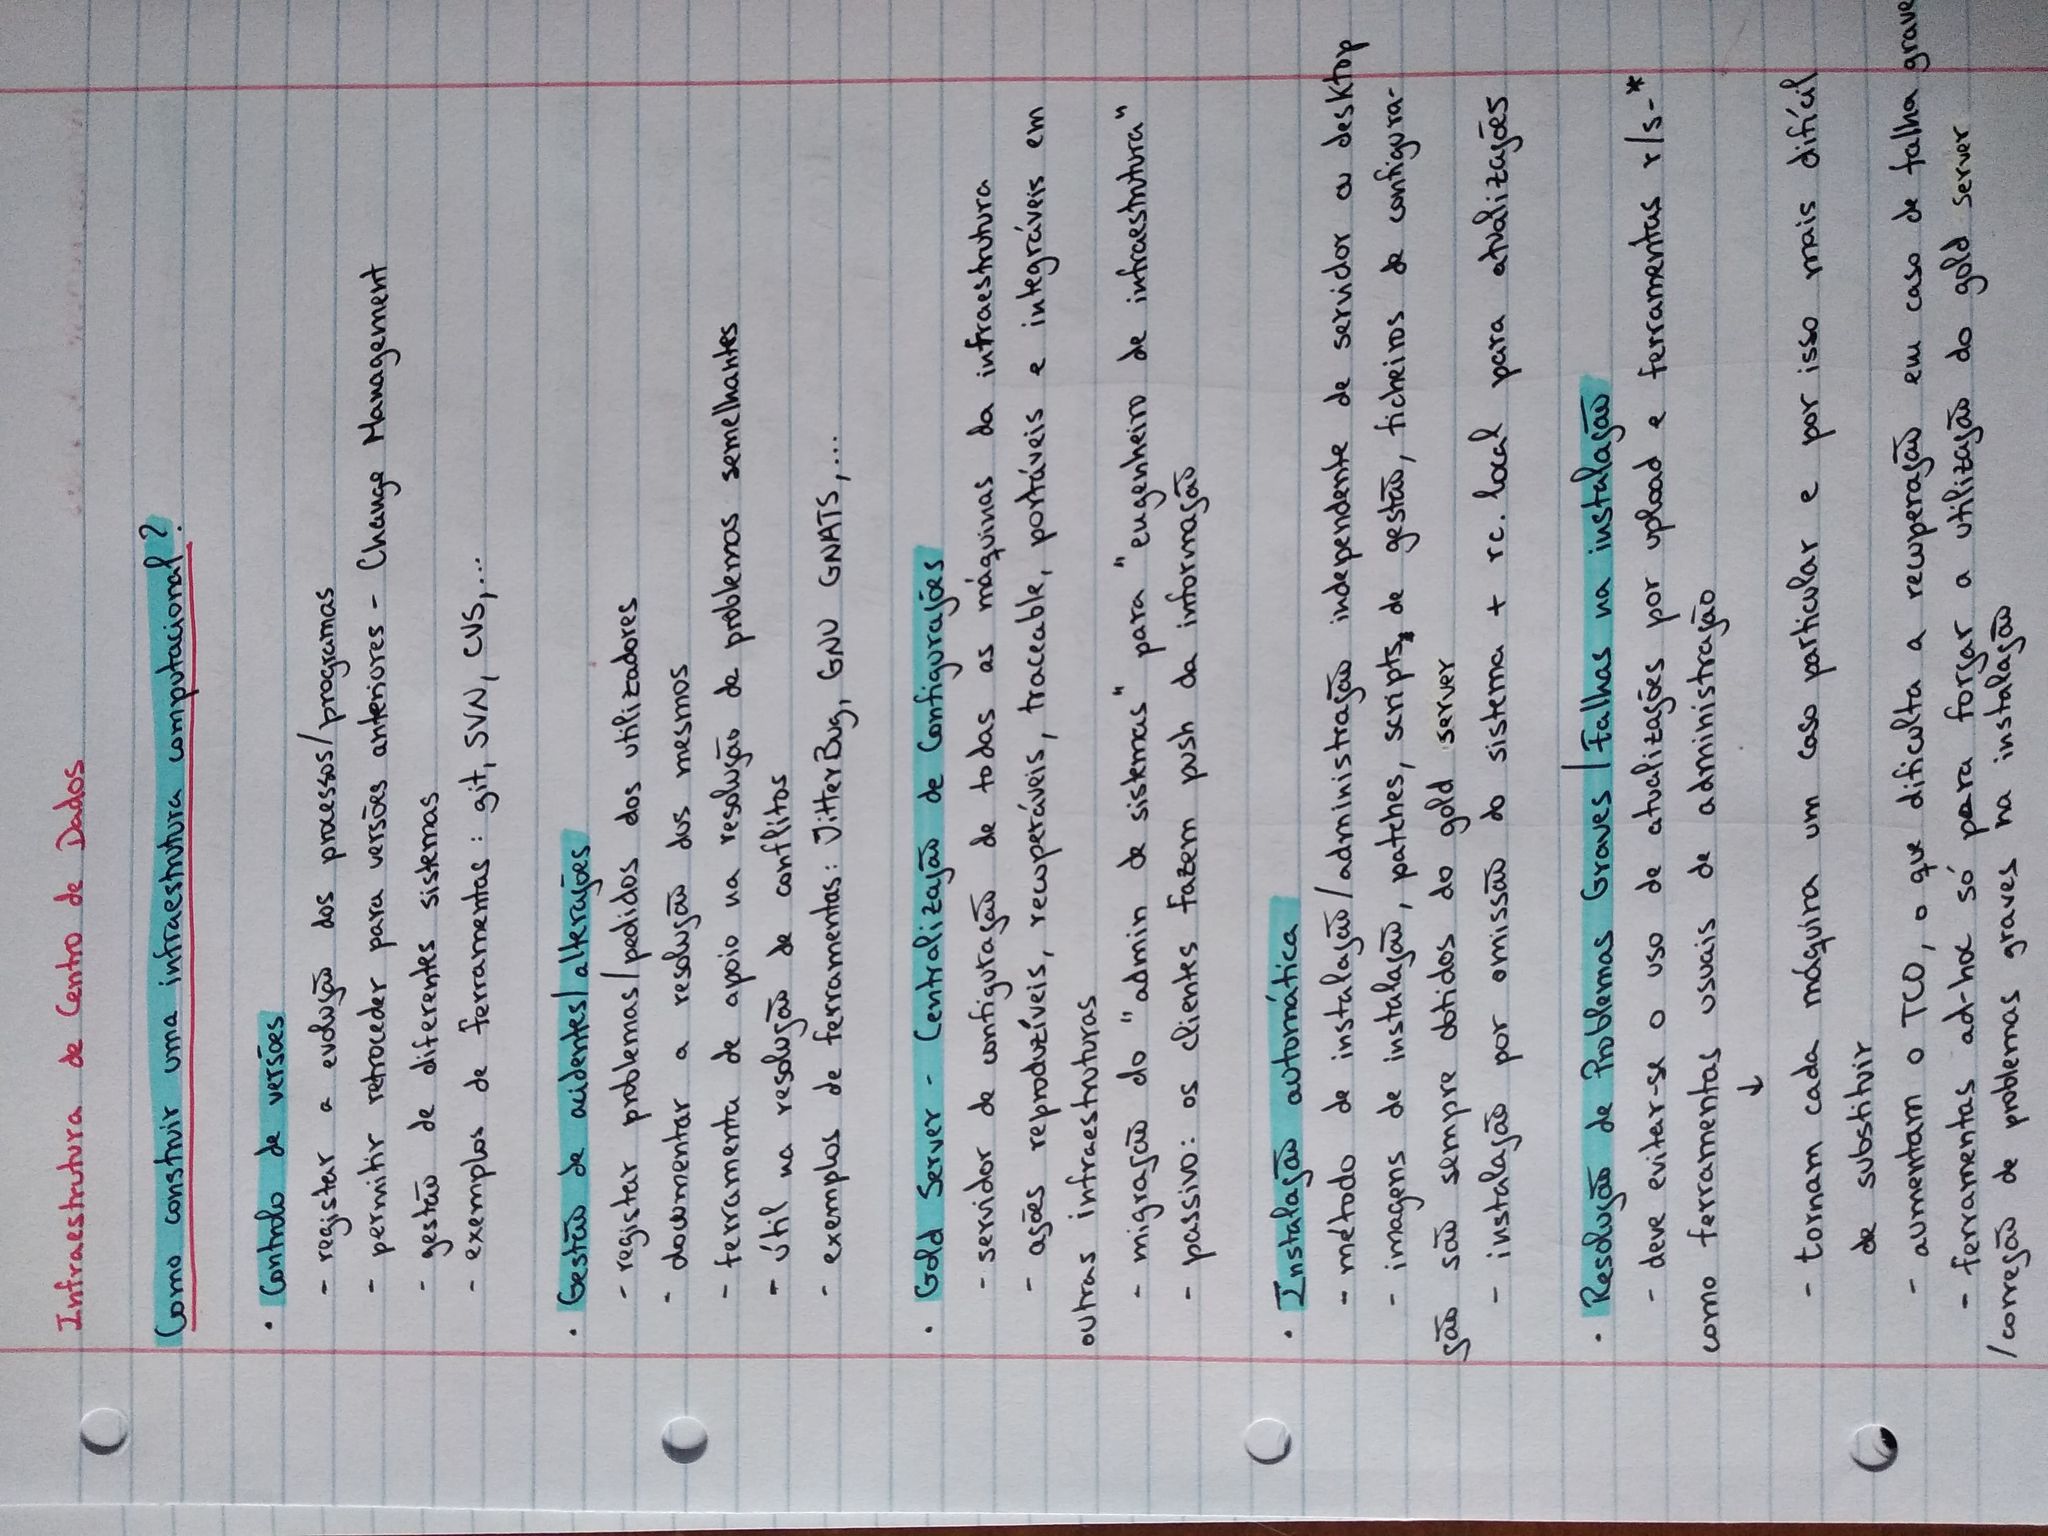 Infraestrutura de Centro de Dados
Como construir uma infraestrutura computacional?
• Controlo de versões
- registar a evolução dos processos/programas
- permitir retroceder para versões anteriores - Change Management
- gestão de diferentes sistemas
- exemplos de ferramentas: git, SVN, CVS,...
• Gestão de acidentes/alterações
- registar problemas/pedidos dos utilizadores
- documentar a resolução dos mesmos
- ferramenta de apoio na resolução de problemas semelhantes
- útil na resolução de conflitos
- exemplos de ferramentas: JitterBug, GNU GNATS,...
• Gold Server - Centralização de Configurações
- servidor de configuração de todas as máquinas da infraestrutura
- ações reproduzíveis, recuperáveis, traceable, portáveis e integráveis em
outras infraestruturas
- migração do "admin de sistemas" para "engenheiro de infraestrutura"
- passivo: os clientes fazem push da informação
• Instalação automática
- método de instalação/administração independente de servidor ou desktop
- imagens de instalação, patches, scripts de gestão, ficheiros de configura-
ção são sempre obtidos do gold server
- instalação por omissão do sistema + rc.local para atualizações
• Resolução de Problemas Graves/Falhas na instalação
- deve evitar-se o uso de atualizações por upload e ferramentas r/s-*
como ferramentas usuais de administração
↓
- tornam cada máquina um caso particular e por isso mais difícil
de substituir
- aumentam o TCO, o que dificulta a recuperação em caso de falha grave
- ferramentas ad-hoc só para forçar a utilização do gold server
/correção de problemas graves na instalação